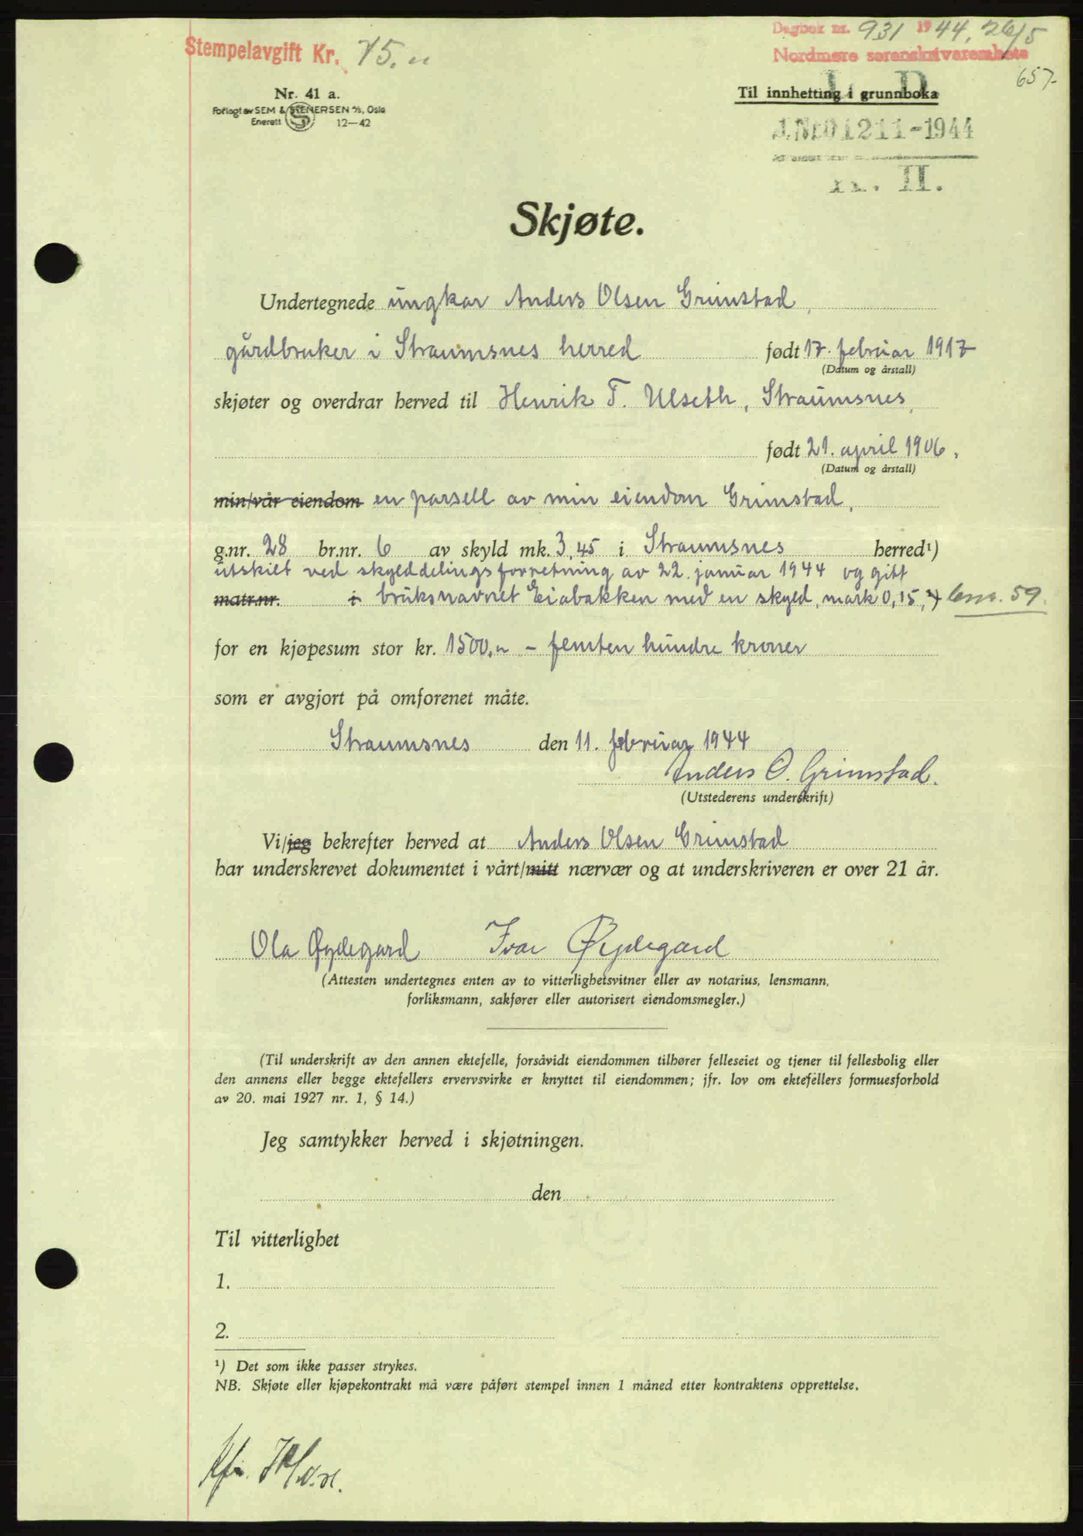 Stempelavgift Kr. 15.-
Dagbok nr. 931 1944, 26/5
Nordmøre sorenskrivarembete
657-
Nr. 41 a.
Forlagt av SEM & STENERSEN A/S, Oslo
Enerett S 12—42
L. D.
Til innhefting i grunnboka
J.Nr. 01211-1944
K. II.
Skjøte.
Undertegnede ungkar Anders Olsen Grimstad,
gårdbruker i Straumsnes herred født 17. februar 1917
(Datum og årstall)
skjøter og overdrar herved til Henrik T. Ulseth, Straumsnes,
født 21. april 1906.
(Datum og årstall)
min/vår eiendom en parsell av min eiendom Grimstad,
g.nr. 28 br.nr. 6 av skyld mk. 3,45 i Straumsnes herred¹)
utskilt ved skylddelingsforretning av 22. januar 1944 og gitt
matr.nr. i bruksnavnet Eiabakken med en skyld, mark 0,15, ¹) bnr. 59.
for en kjøpesum stor kr. 1500.- – femten hundre kroner
som er avgjort på omforenet måte.
Straumsnes den 11. februar 1944
Anders O. Grimstad.
(Utstederens underskrift)
Vi/jeg bekrefter herved at Anders Olsen Grimstad
har underskrevet dokumentet i vårt/mitt nærvær og at underskriveren er over 21 år.
Ola Øydegard Ivar Øydegard
(Attesten undertegnes enten av to vitterlighetsvitner eller av notarius, lensmann,
forliksmann, sakfører eller autorisert eiendomsmegler.)
(Til underskrift av den annen ektefelle, forsåvidt eiendommen tilhører felleseiet og tjener til fellesbolig eller
den annens eller begge ektefellers ervervsvirke er knyttet til eiendommen; jfr. lov om ektefellers formuesforhold
av 20. mai 1927 nr. 1, § 14.)
Jeg samtykker herved i skjøtningen.
den
Til vitterlighet
1.
2.
¹) Det som ikke passer strykes.
NB. Skjøte eller kjøpekontrakt må være påført stempel innen 1 måned etter kontraktens opprettelse.